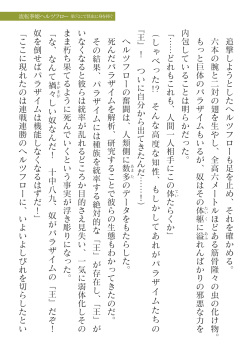 追撃しようとしたヘルツフローも足を止め、それを確かめる。
六本の腕と二対の翅を生やし、全高六メートルほどある筋骨隆々の虫の化け物。
もっと巨体のパラザイムもいるが、奴はその体躯に溢れんばかりの邪悪な力を
内包していることは明らかだ。
「……どれもこれも、人間一人相手にこの体たらくか」
（しゃべった!?　そんな高度な知性、もしかしてあれがパラザイムたちの
「王」！　ついに自分から出てきたんだ……―！）
ヘルツフローの奮闘は、人類側に数多のデータをもたらした。
死んだパラザイムを解析、研究することで彼らの生態もわかってきたのだ。
その結果、パラザイムには種族を統率する絶対的な「王」が存在し、「王」が
いなくなると彼らは統率が乱れるどころか目的さえ見失い、一気に弱体化しその
まま朽ち果てるように死んでいくという事実が浮き彫りになった。
「な、なんて禍々しい奴なんだ！　十中八九、奴がパラザイムの「王」だぞ！
奴を倒せばパラザイムは機能しなくなるはずだ！」
「ここに現れたのは連戦連勝のヘルツフローに、いよいよしびれを切らしたとい